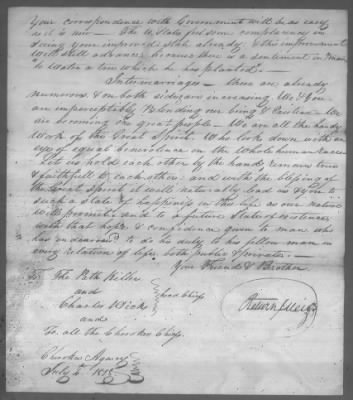 Your correspondence with Government will be as easy
as it is now - The U. States feel some complacency in
seeing your improved state already & this improvement
will still advance, because there is a sentiment in man
"to Water a tree which he has planted" -
Intermarriages - these are already
numerous & on both sides increasing, We & You
are imperceptably Blending our being & Position We
are becoming one great people - We are all the handy
Work of the Great Spirit, Who looks down with an
eye of equal benevolence on the Whole human race
Let us hold each other by the hand, remain true
& faithfull to each other: and with the blessing of
the Great Spirit it will naturally lead us & you to
such a state of happiness in this life as our nature
Will promise, and to a future State of existence,
with that hope & confidence given to man who
has endeavored to do his duty to his fellow man in
every relation of life, both public & private. -
Your Friend & Brother
To The Path Killer
and
Charles Hicks
head Chiefs
and
To all the Cherokee Chiefs.
Return J. Meigs
Cherokee Agency
July 1815